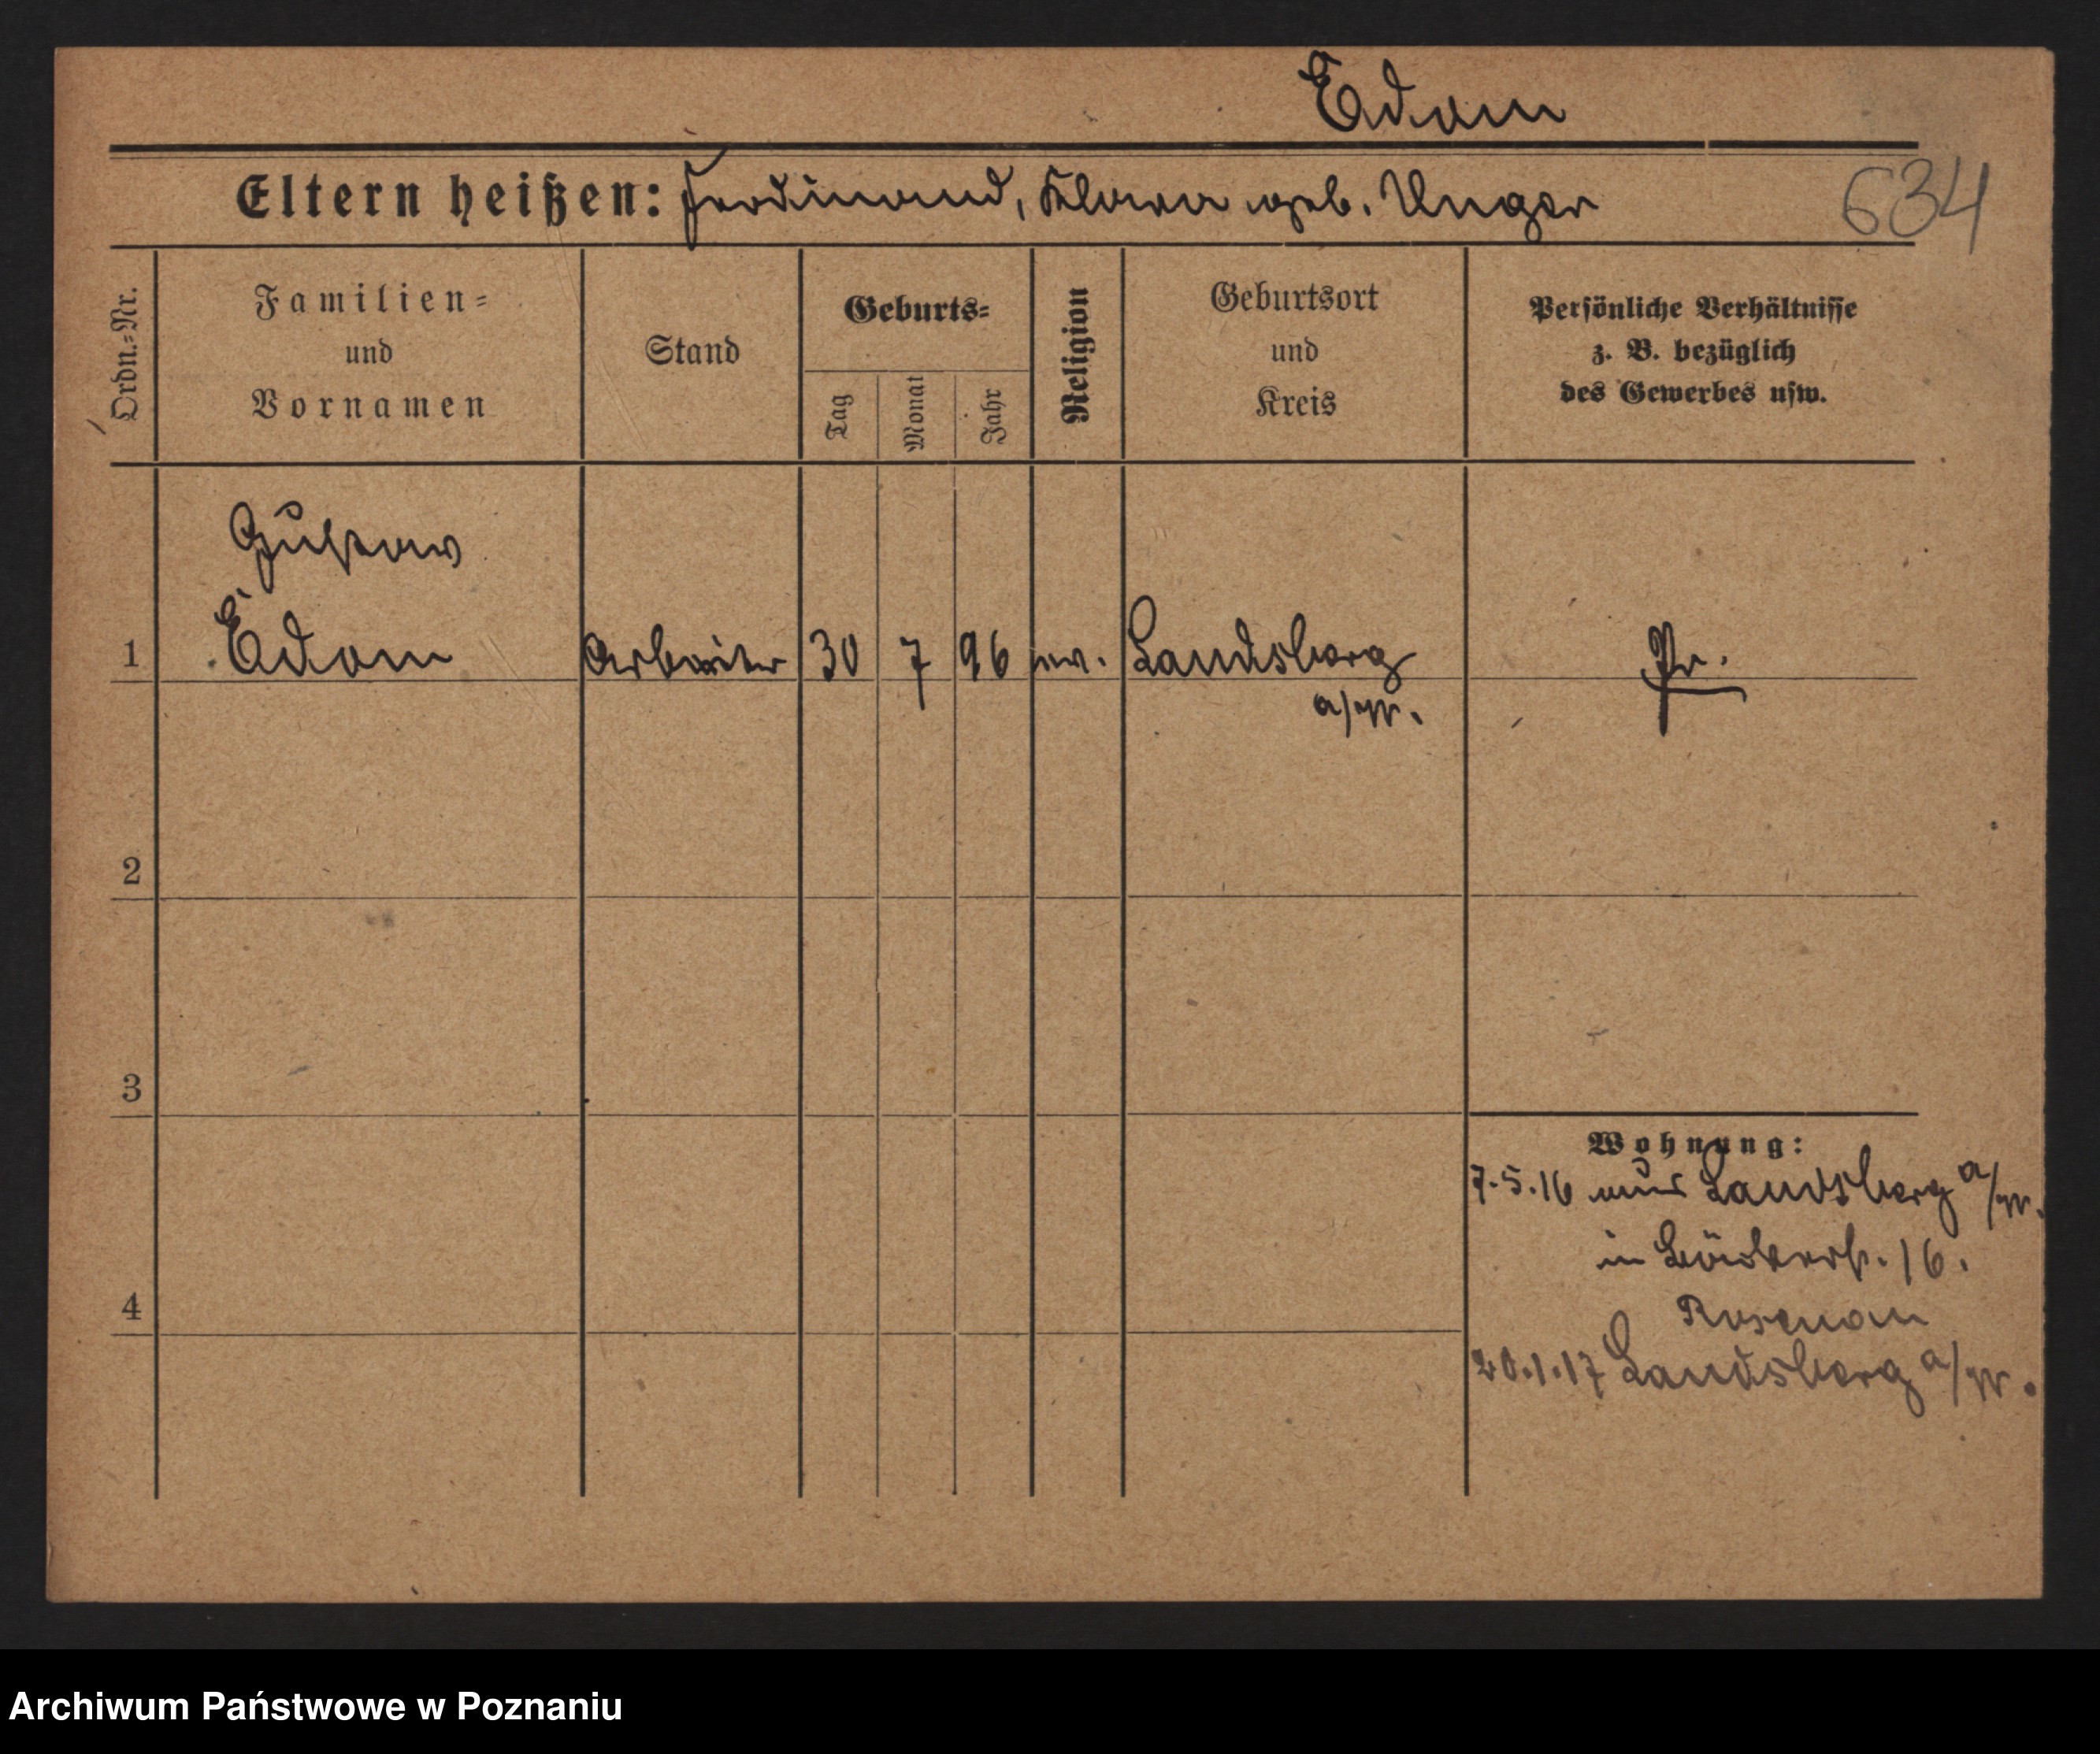 Edom
Eltern heißen: Ferdinand, Klara geb. Unger
634
Ordn.-Nr.
Familien-
und
Vornamen
Stand
Geburts-
Tag
Monat
Jahr
Religion
Geburtsort
und
Kreis
Persönliche Verhältnisse
z. B. bezüglich
des Gewerbes usw.
Gustav
1 Edom Arbeiter 30 7 96 ev. Landsberg Pr.
a/W.
2
3
Wohnung:
7.5.16 aus Landsberg a/W.
in 16.
4
Rosenau
20.1.17 Landsberg a/W.
Archiwum Państwowe w Poznaniu